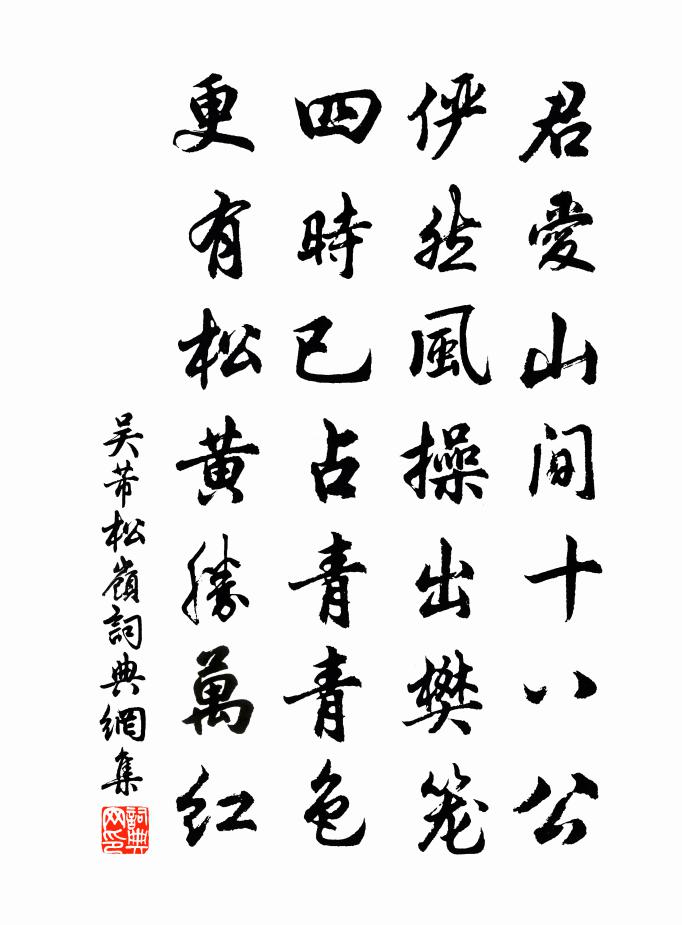 君愛山間十八公
儼然風操出樊笼
四時已占青青色
更有松黄勝萬紅
吴芾松嶺詞典網集
詞典
网印